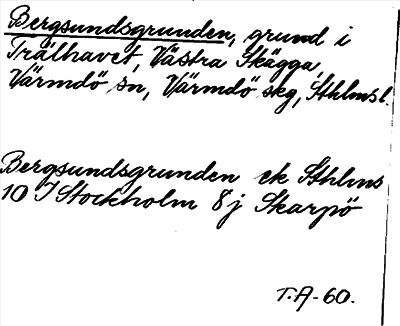 Bergsundsgrunden, grund i
Trälhavet, Västra Skägga,
Värmdö sn, Värmdö skg, Sthlms l.
Bergsundsgrunden ek Sthlms
10 I Stockholm 8 j Skarpö
T.A-60.